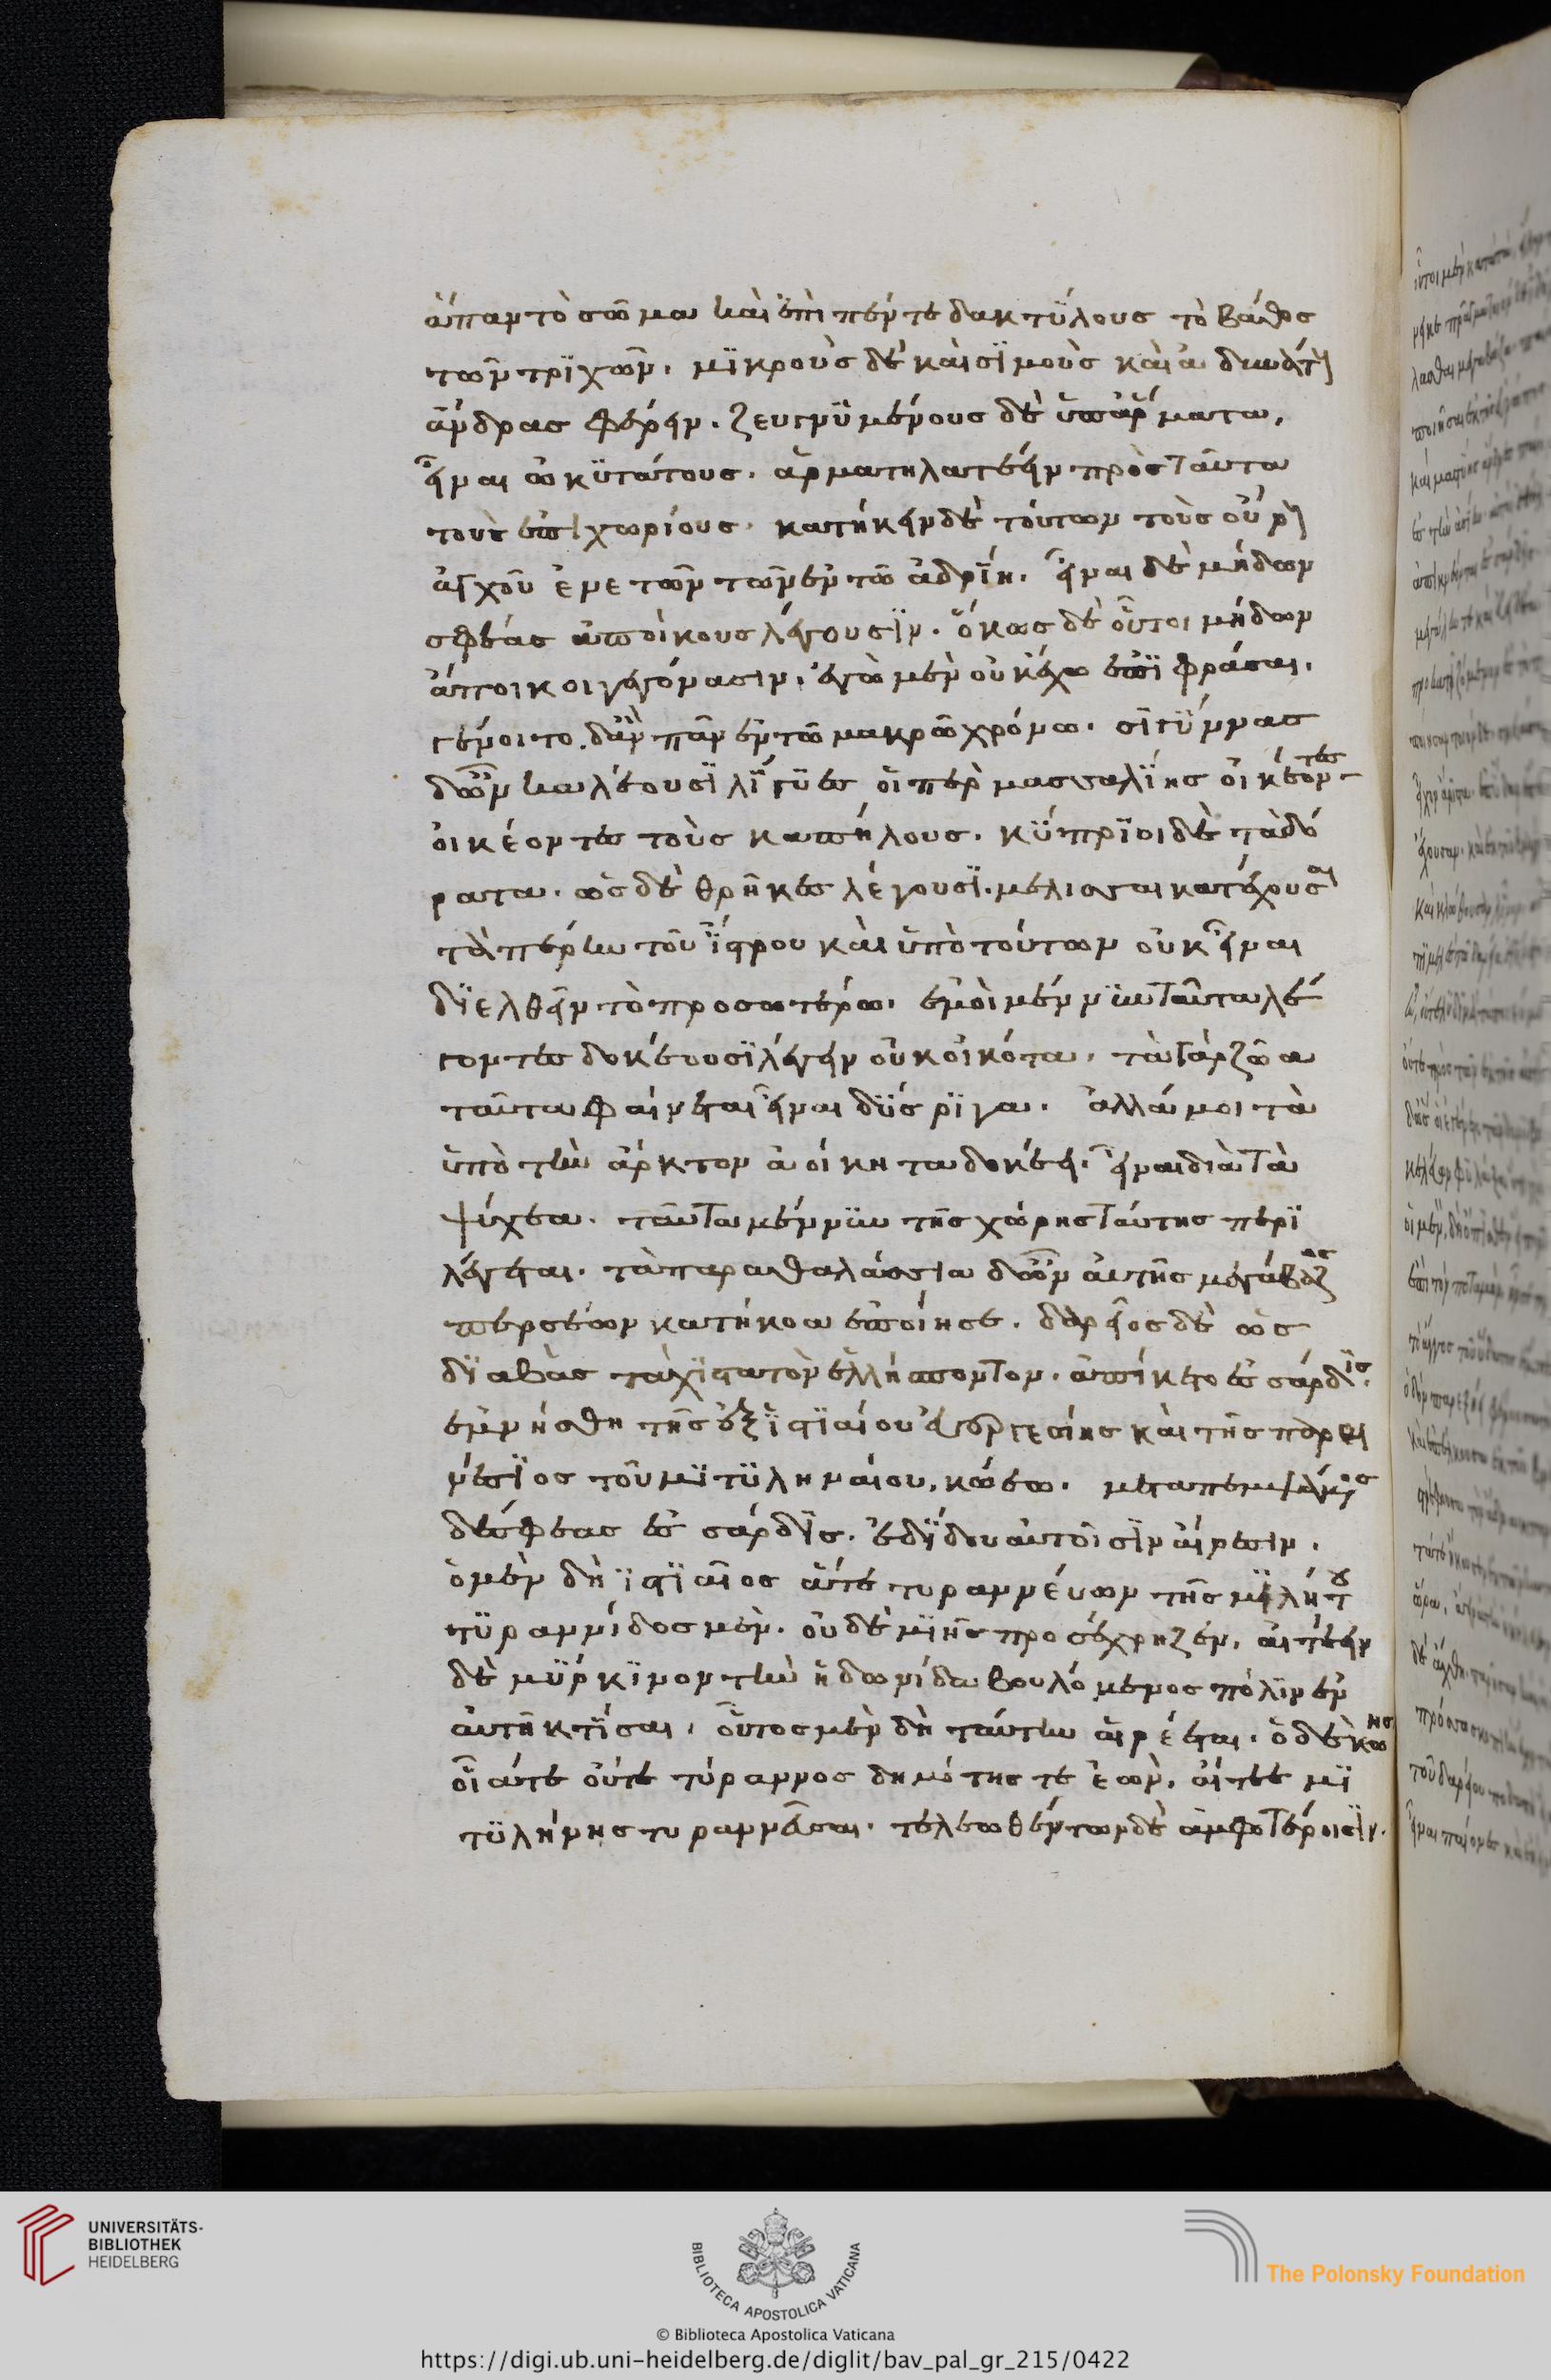 ἅπαν τὸ σῶμα καὶ ἐπὶ πέντε δακτύλους τὸ βάθος
τῶν τριχῶν. μικροὺς δὲ καὶ σιμοὺς καὶ ἀδυνάτ
ἄνδρας φέρειν. ζευγνυμένους δὲ ὑπ' ἅρματα,
εἶναι ὀκυτάτους. ἁρματηλατέειν πρὸς ταῦτα
τοὺς ἐπιχωρίους. κατήκειν δὲ τούτων τοὺς οὔρ
ἀγχοῦ ἐνετῶν τῶν ἐν τῶ ἀδρίη. εἶναι δὲ μήδων
σφέας ἀποίκους λέγουσιν. ὅκως δὲ οὗτοι μήδων
ἄποικοι γεγόνασιν, ἐγὼ μὲν οὐκ ἔχω ἐπιφράσαι.
γένοιτο δ' ἂν πᾶν ἐν τῶ μακρῶ χρόνω. σιγύννας
δ' ὦν καλέουσι λίγυες οἱ περ μασσαλίης οἰκέοντες
οἰκέοντες τοὺς καπήλους. κύπριοι δὲ τὰ δό
ρατα. ὡς δὲ θρῆκες λέγουσι. μέλισσαι κατέχουσαι
τὰ πέρην τοῦ ἴστρου καὶ ὑπὸ τούτων οὐκ εἶναι
διελθεῖν τὸ προσωτέρω. ἐμοὶ μέν νυν ταῦτα λέ
γοντες δοκέουσι λέγειν οὐκ οἰκότα. τὰ γὰρ ζῶα
ταῦτα φαίνεται εἶναι δύσριγα. ἀλλά μοι τὰ
ὑπὸ τὴν ἄρκτον ἀοίκητα δοκέει. εἶναι διὰ τὰ
ψύχεα. ταῦτα μέν νυν τῆς χώρης ταύτης πέρι
λέγεται. τὰ παραθαλάσσια δ' ὦν αὐτῆς μεγάβαζος
περσέων κατήκοα ἐποίησε. δαρεῖος δὲ ὡς
διαβὰς τάχιστα τὸν ἑλλήσποντον. ἀπίκετο ἐς σάρδις.
ἐμνήσθη τῆς ἐξ ἱστιαίου εὐεργεσίης καὶ τῆς παραι
νέσιος τοῦ μιτυληναίου, κώεω. μεταπεμψάμενος
δέ σφεας ἐς σάρδις. ἐδίδου αὐτοῖσιν αἵρεσιν.
ὁ μὲν δὴ ἱστιαῖος ἅτε τυραννεύων τῆς μιλήτου
τυραννίδος μὲν. οὐδεμιῆς προσέχρηζεν, αἰτέειν
δὲ μύρκινον τὴν ἠδωνίδα βουλόμενος πόλιν ἐν
αὐτῆ κτίσαι. οὗτος μὲν δὴ ταύτην αἱρέεται. ὁ δὲ κώης
οἷα τε οὔτε τύραννος δημότης τε ἐὼν. αἰτέε μι
τυλήνης τυραννεῦσαι. τελεωθέντων δὲ ἀμφοτέροισιν.
UNIVERSITÄTS-
BIBLIOTHEK
HEIDELBERG
BIBLIOTECA APOSTOLICA VATICANA
The Polonsky Foundation
© Biblioteca Apostolica Vaticana
https://digi.ub.uni-heidelberg.de/diglit/bav_pal_gr_215/0422